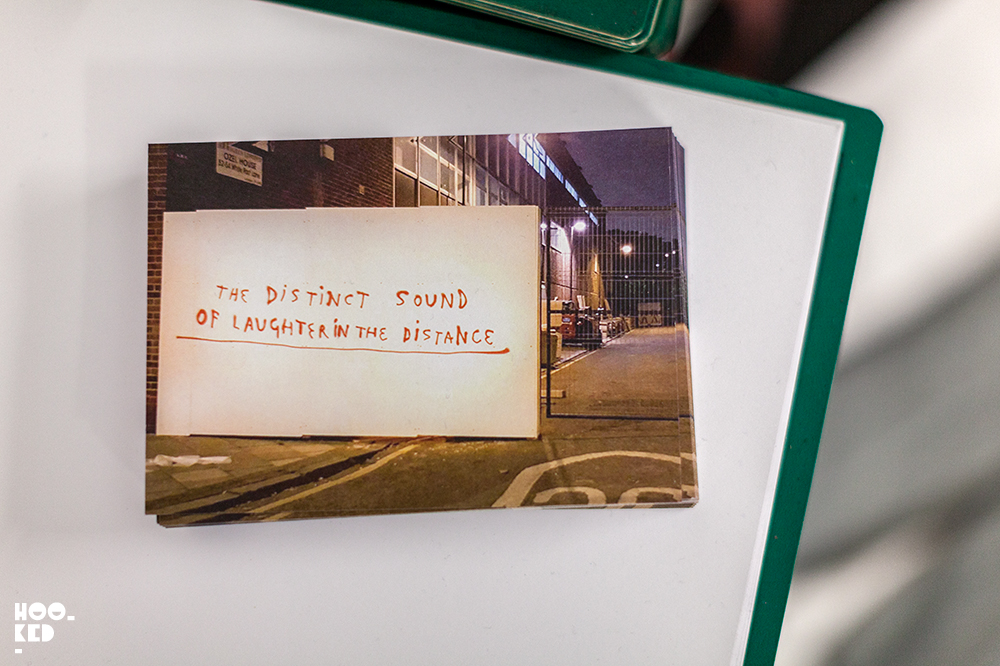 OZEL HOUSE
THE DISTINCT SOUND
OF LAUGHTER IN THE DISTANCE
20
HOO-
KED
-